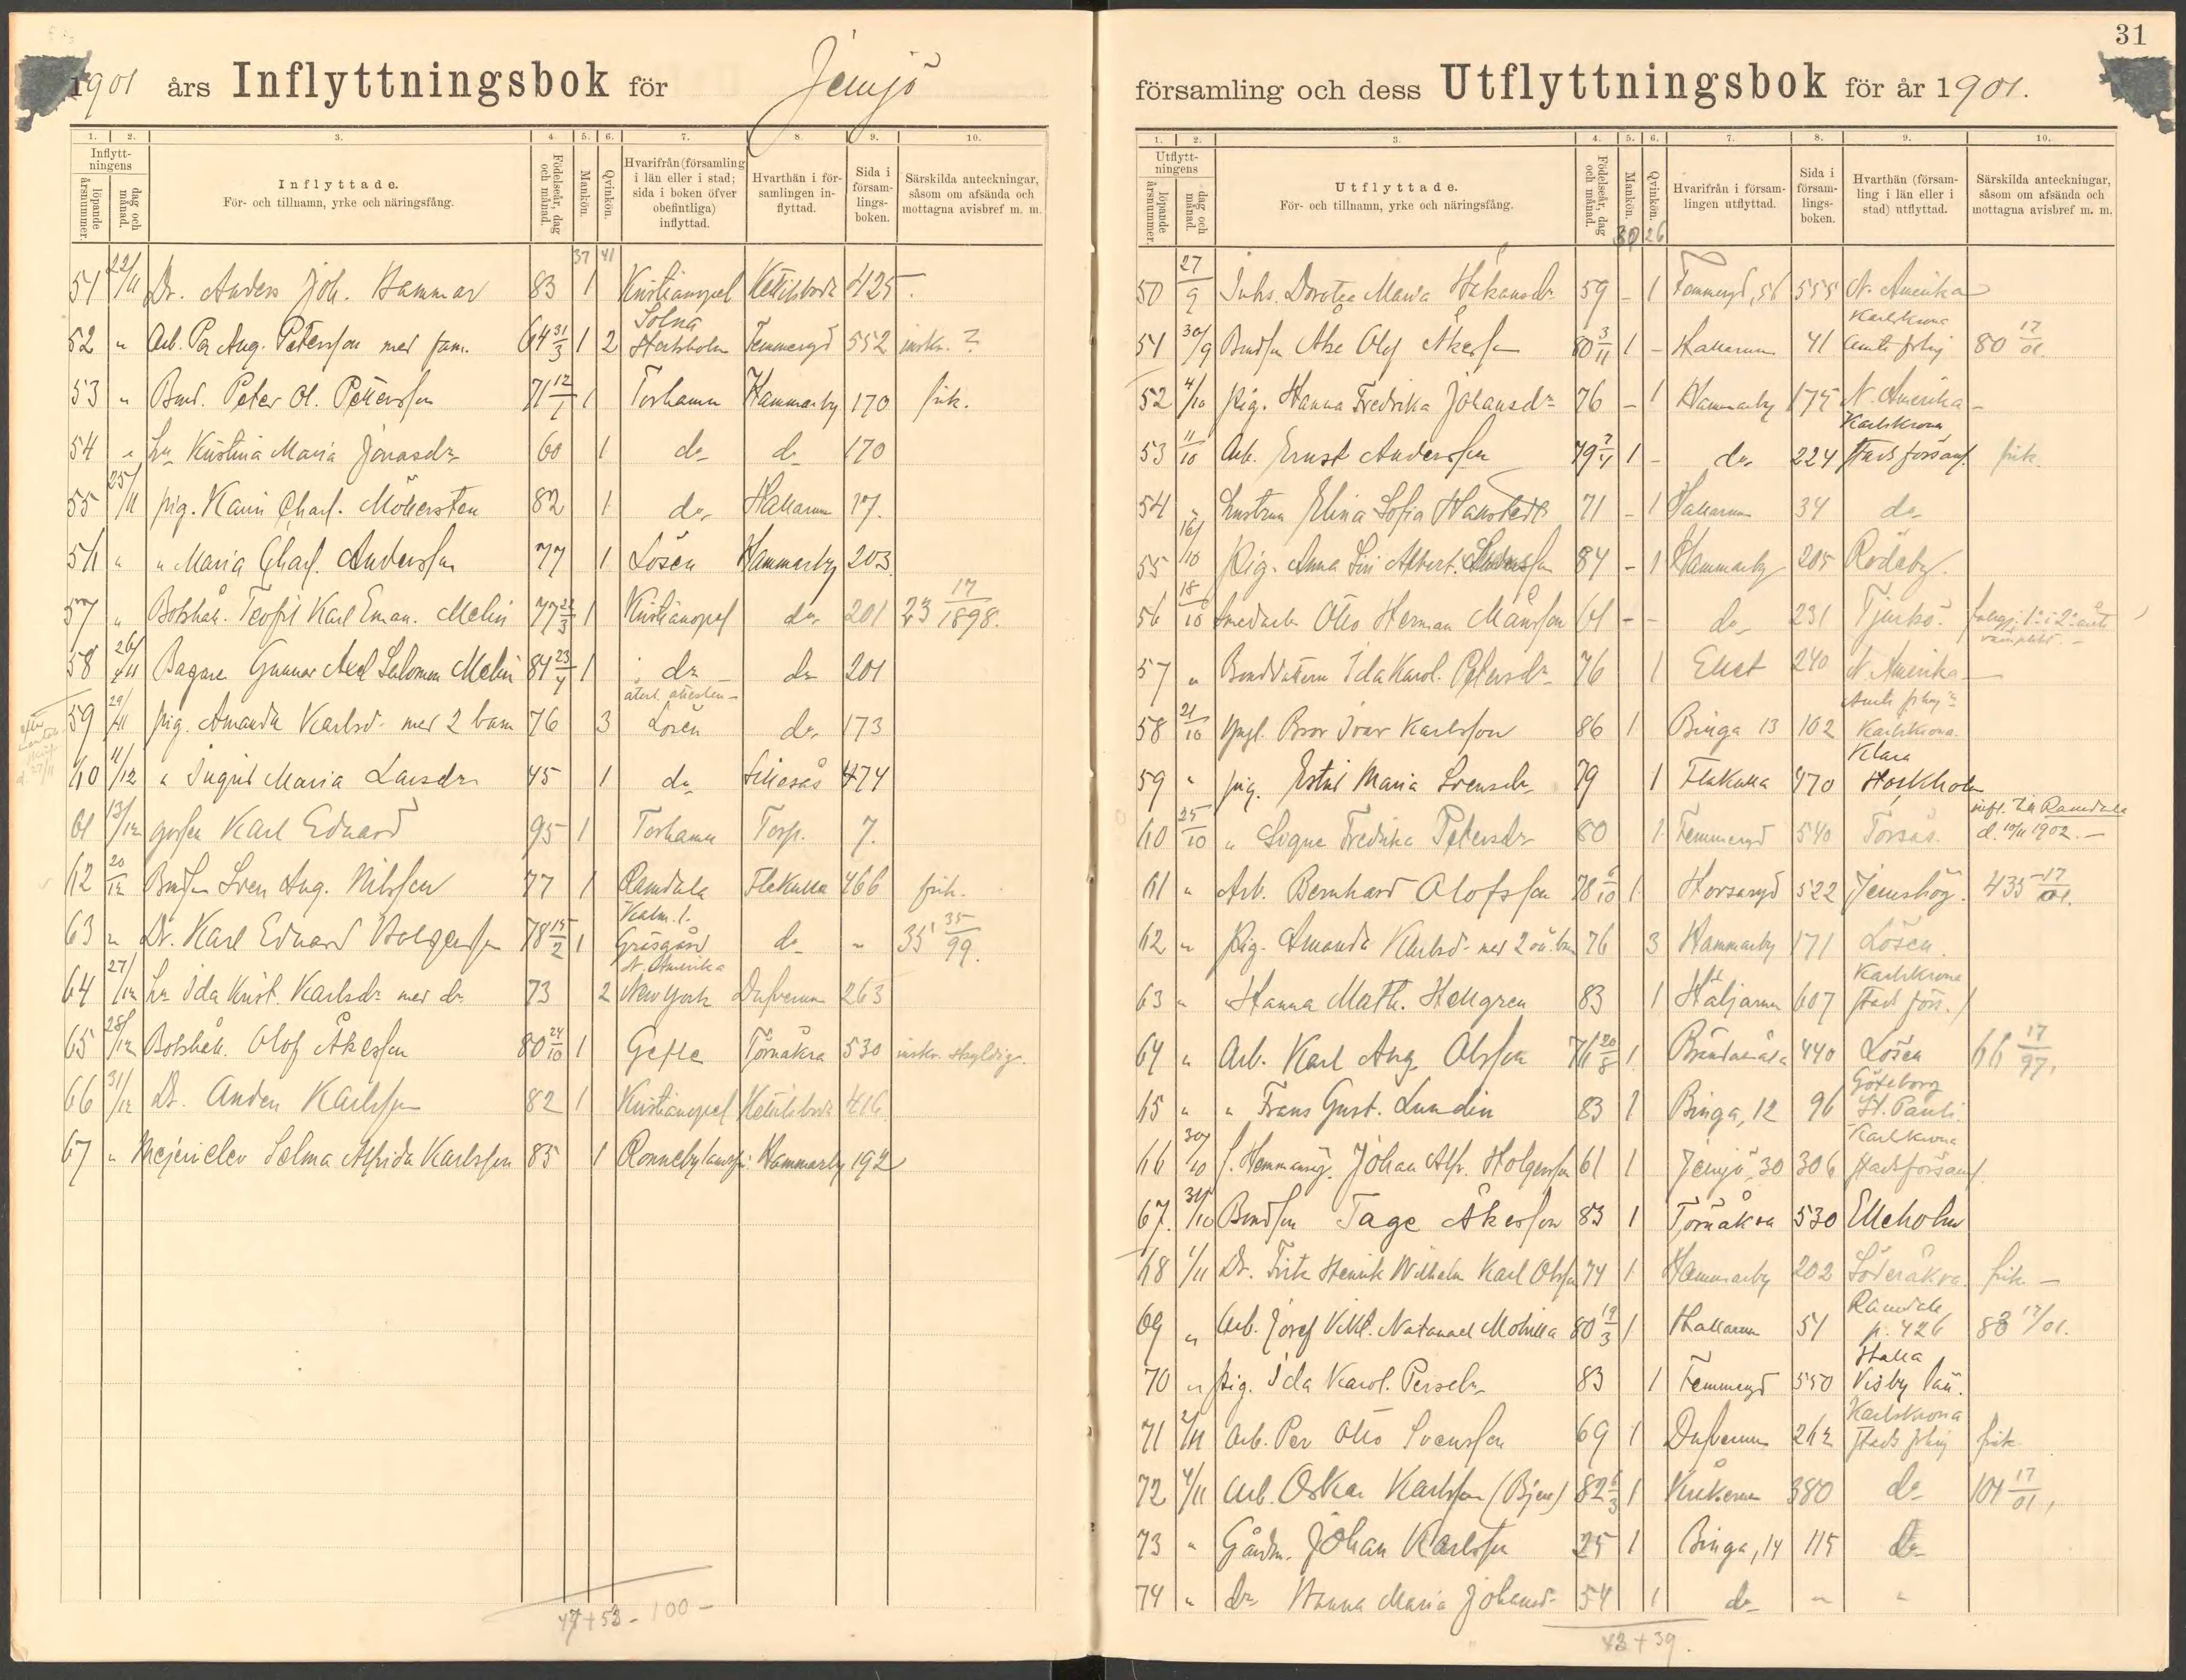 1901 års Inflyttningsbok för Jemjö
1. 2. 3. 4. 5. 6. 7. 8. 9. 10.
Inflyttningens
löpande årsnummer.
dag och månad.
Inflyttade.
För- och tillnamn, yrke och näringsfång.
Födelseår, dag och månad.
Mankön.
Qvinkön.
Hvarifrån (församling i län eller i stad; sida i boken öfver obefintliga) inflyttad.
Hvarthän i församlingen inflyttad.
Sida i församlingsboken.
Särskilda anteckningar, såsom om afsända och mottagna avisbref m. m.
37 41
51 22/11 Dr. Anders Joh. Hammar 83 1 Kristianopel Kettilsboda 425
52 " Arb. Per Aug. Petersson med fam. 64 31/3 1 2 Solna Stockholm Femmeryd 552 inskr. ?
53 " Bond. Peter Ol. Pettersson 71 12/7 1 Torhamn Hammarby 170 frik.
54 " Hu Kristina Maria Jonasdr 60 1 do do 170
55 25/11 pig. Karin Charl. Möllersten 82 1 do Hallarum 17.
56 " " Maria Charl. Andersson 77 1 Lösen Hammarby 203
57 " Båtshål. Teofil Karl Eman. Melin 77 22/3 1 Kristianopel do 201 23 17/1898.
58 26/11 Bagare Gunnar Axel Salomon Melin 84 23/4 1 do do 201
59 29/11 pig. Amanda Karlsd. med 2 barn 76 3 återl. attesten Lösen do 173
60 11/12 " Ingrid Maria Larsdr 45 1 do Lillesås 474
61 13/12 gossen Karl Eduard 95 1 Torhamn Torp. 7.
62 20/12 Bondson Sven Aug. Nilsson 77 1 Ramdala Flakulla 466 frik.
63 " Dr. Karl Eduard Holgersson 78 15/2 1 Kalm. l. Gräsgård do " 35 35/99.
64 27/12 Hu Ida Krist. Karlsdr med dr 73 2 N. Amerika New York Dufverum 263
65 28/12 Båtshål. Olof Åkesson 80 24/10 1 Gefle Törnåkra 530 inskr. skyldig.
66 31/12 Dr. Anders Karlsson 82 1 Kristianopel Kettilsboda 416
67 " Mejerielev Selma Alfrida Karlsson 85 1 Ronneby landsf. Hammarby 192
47+53 - 100 -
31
församling och dess Utflyttningsbok för år 1901.
1. 2. 3. 4. 5. 6. 7. 8. 9. 10.
Utflyttningens
löpande årsnummer.
dag och månad.
Utflyttade.
För- och tillnamn, yrke och näringsfång.
Födelseår, dag och månad.
Mankön.
Qvinkön.
Hvarifrån i församlingen utflyttad.
Sida i församlingsboken.
Hvarthän (församling i län eller i stad) utflyttad.
Särskilda anteckningar, såsom om afsända och mottagna avisbref m. m.
30 26
50 27/9 Inhs. Dorotea Maria Håkansdr 59 - 1 Femmeryd, 56 555 N. Amerika
51 30/9 Bondson Åke Olof Åkesson 80 3/11 1 - Hallarum 41 Karlskrona amir. fhlg 80 17/01.
52 4/10 Pig. Hanna Fredrika Johansdr 76 - 1 Hammarby 175 N. Amerika -
53 11/10 Arb. Ernst Andersson 79 7/4 1 - do 224 Karlskrona stads församl. frik.
54 " Hustrun Elina Sofia Hanstedt 71 - 1 Hallarum 34 do
55 16/10 Pig. Anna Siri Albert. Andersson 84 - 1 Hammarby 205 Rödeby.
56 18/10 Smedarb. Otto Herman Månsson 61 - - do 231 Tjurkö.
57 " Bonddottern Ida Karol. Petersdr 76 1 Ellet 240 N. Amerika
58 21/10 Yngl. Bror Ivar Karlsson 86 1 Binga 13 102 Amir. fhlg Karlskrona.
59 " pig. Ester Maria Svensdr 79 1 Flakulla 470 Klara Stockholm
60 25/10 " Signe Fredrika Petersdr 80 1 Femmeryd 540 Torsås. infl. till Ramdala d. 10/11 1902. -
61 " Arb. Bernhard Olofsson 78 6/10 1 Horsaryd 522 Jemshög. 435 17/01.
62 " Pig. Amanda Karlsd. med 2 oä. barn 76 3 Hammarby 171 Lösen.
63 " " Hanna Math. Hellgren 83 1 Häljarum 607 Karlskrona stads förs.
64 " Arb. Karl Aug. Olsson 76 20/8 1 440 Lösen 66 17/97.
65 " " Frans Gust. Lundin 83 1 Binga, 12 96 Göteborg St. Pauli.
66 30/10 f. Hemmansäg. Johan Alfr. Holgersson 61 1 Jemjö 30 306 Karlskrona stads församl.
67. 31/10 Bondson Tage Åkesson 83 1 Törnåkra 530 Elleholm
68 1/11 Dr. Frits Henrik Wilhelm Karl Olsson 74 1 Hammarby 202 Söderåkra. frik. -
69 " Arb. Josef Vikt. Natanael Molilla 80 19/3 1 Hallarum 51 Ramdala p. 426 83 17/01.
70 " Pig. Ida Karol. Persdr 83 1 Femmeryd 550 Halla Visby län.
71 2/11 Arb. Per Otto Svensson 69 1 Dufverum 262 Karlskrona stads fhlg frik.
72 4/11 Arb. Oskar Karlsson (Bjers) 82 6/3 1 380 do 101 17/01,
73 " Gårdm. Johan Karlsson 25 1 Binga, 14 115 do
74 " do Hanna Maria Johansd. 54 1 do " "
43 + 39.